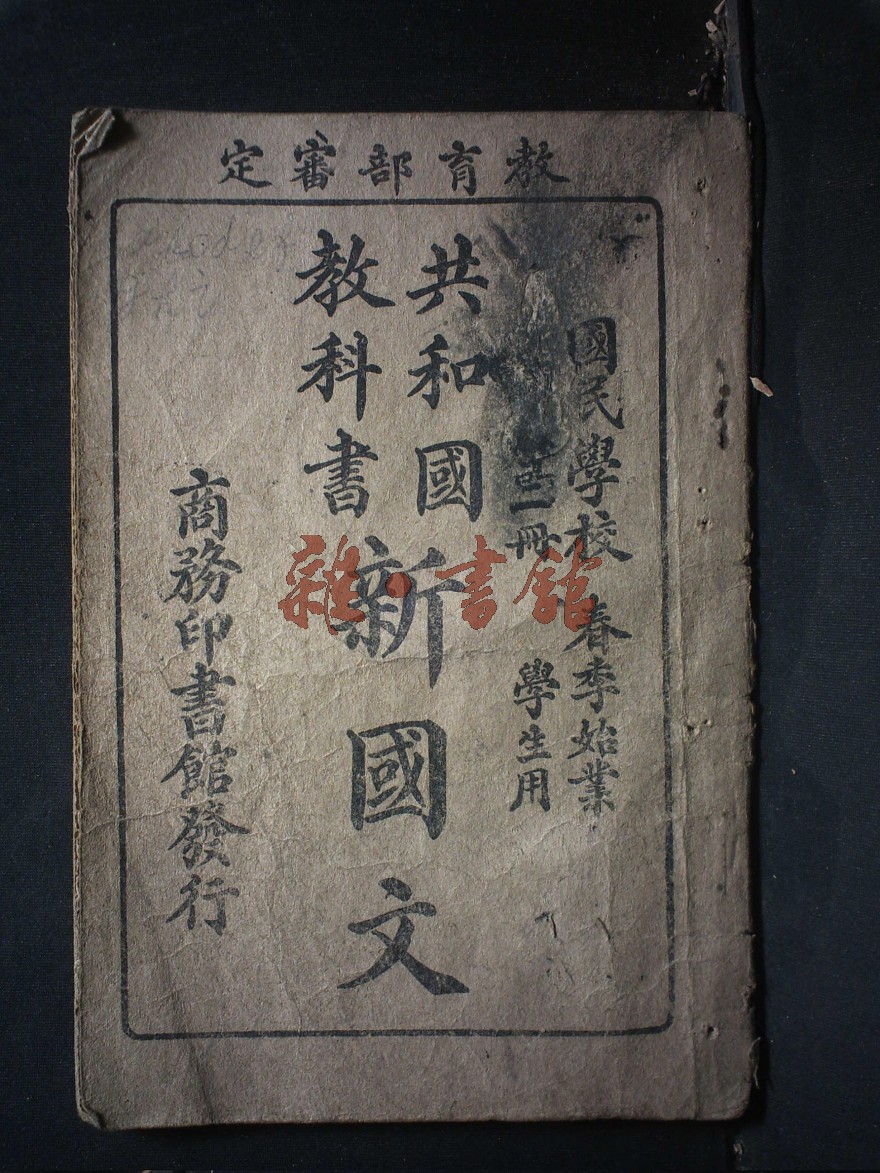 教育部審定
國民學校 春季始業
二冊 學生用
共和國
教科書
新國文
商務印書館發行
雜·書館